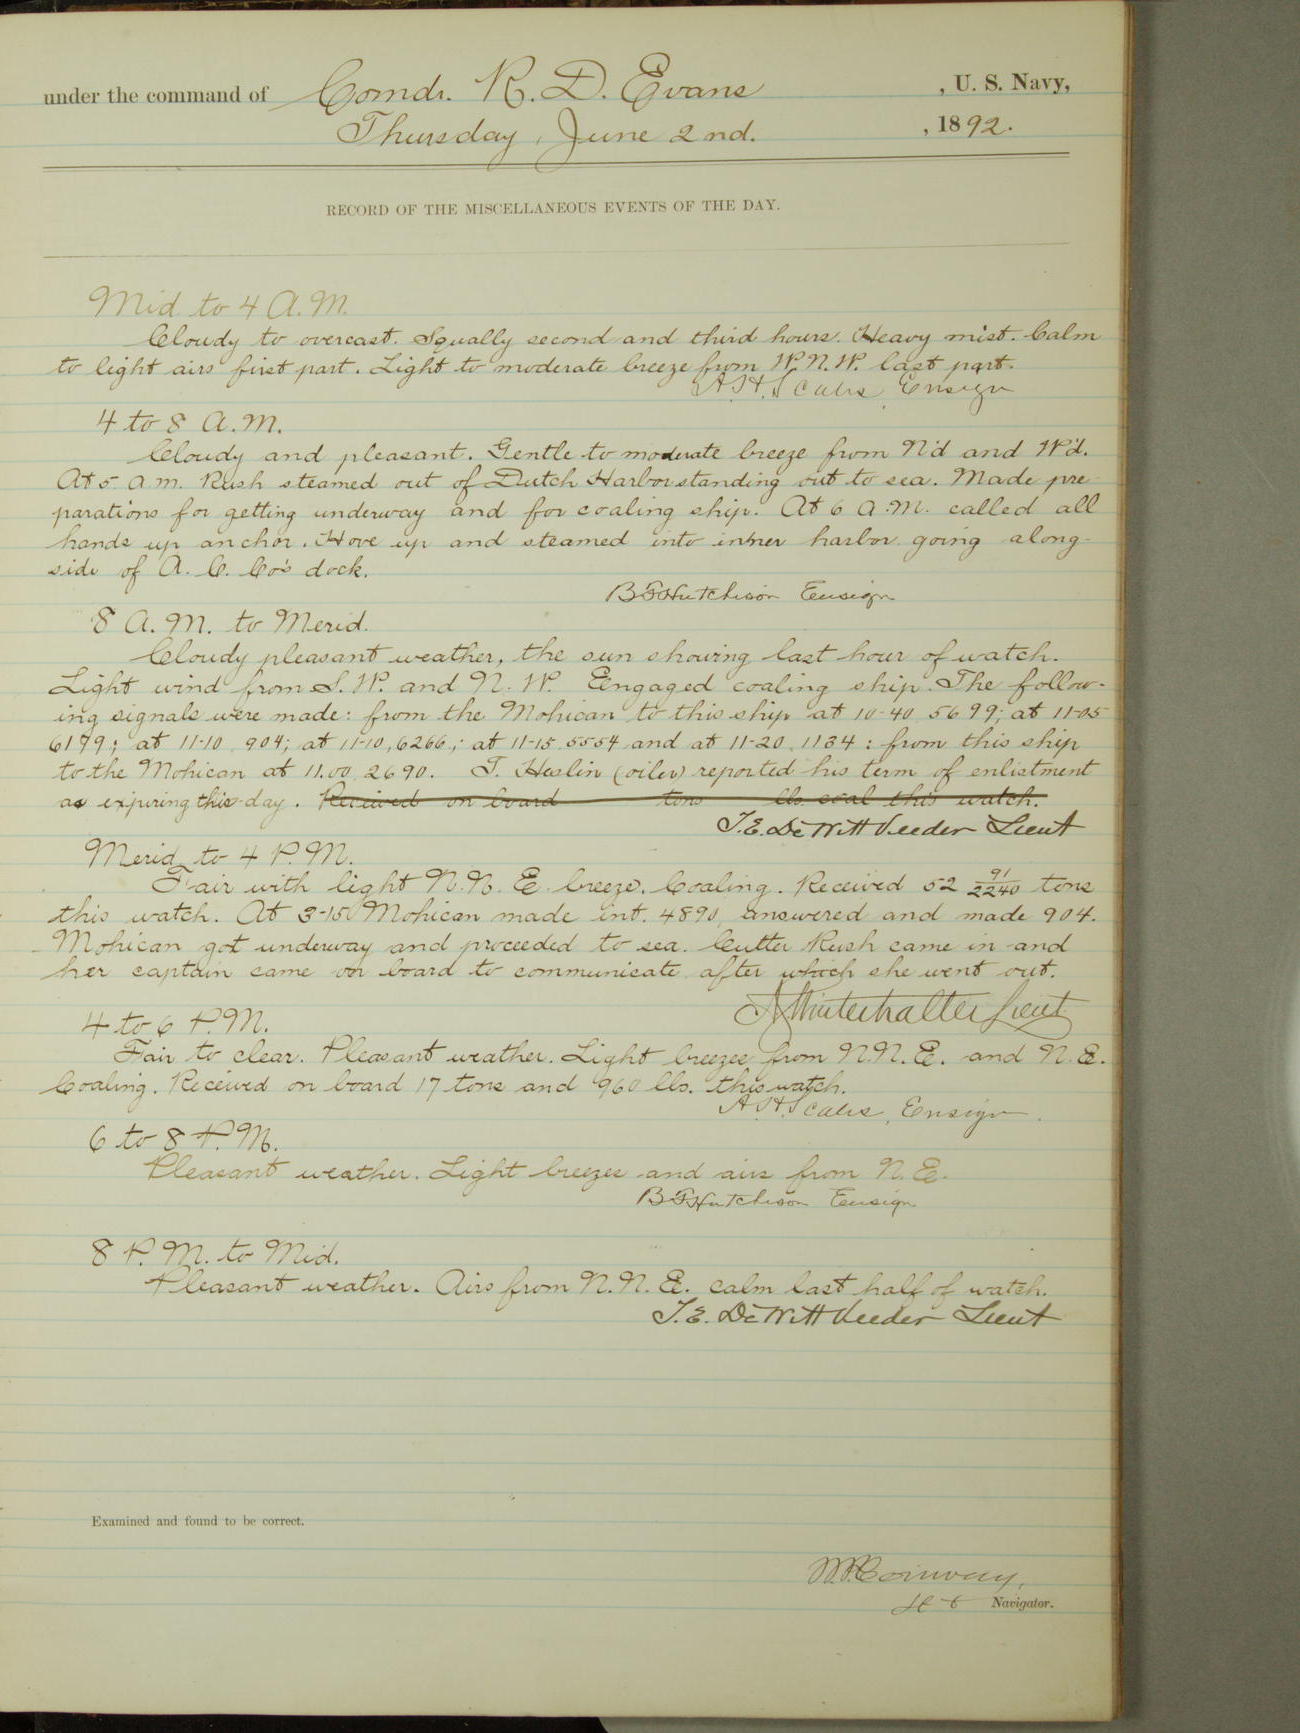 under the command of Comdr. R. D. Evans , U. S. Navy,
Thursday, June 2nd. , 1892.
RECORD OF THE MISCELLANEOUS EVENTS OF THE DAY.
Mid to 4 A.M.
Cloudy to overcast. Squally second and third hours. Heavy mist. Calm
to light airs first part. Light to moderate breeze from W.N.W. last part.
A.H. Scales, Ensign
4 to 8 A.M.
Cloudy and pleasant. Gentle to moderate breeze from N'd and W'd.
At 5 a m. Rush steamed out of Dutch Harbor standing out to sea. Made pre-
parations for getting underway and for coaling ship. At 6 A.M. called all
hands up anchor. Hove up and steamed into inner harbor going along-
side of A. C. Co's dock.
B F Hutchison Ensign
8 A.M. to Merid.
Cloudy pleasant weather, the sun showing last hour of watch.
Light wind from S.W. and N.W. Eengaged coaling ship. The follow-
ing signals were made: from the Mohican to this ship at 10-40 5699; at 11-05
6179; at 11-10, 904; at 11-10, 6266; at 11-15 5554 and at 11-20, 1134: from this ship
to the Mohican at 11.00 2690. T. Heslin (oiler) reported his term of enlistment
as expiring this day. Received on board tons lbs. coal this watch.
T.E. DeWitt Veeder Lieut
Merid to 4 P.M.
Fair with light N.N.E. breeze. Coaling. Received 52 91/2240 tons
this watch. At 3-15 Mohican made int. 4890, answered and made 904.
Mohican got underway and proceeded to sea. Cutter Rush came in and
her captain came on board to communicate after which she went out.
A Winterhalter Lieut
4 to 6 P.M.
Fair to clear. Pleasant weather. Light breezes from N.N.E. and N.E.
Coaling. Received on board 17 tons and 960 lbs. this watch.
A.H. Scales, Ensign.
6 to 8 P.M.
Pleasant weather. Light breezes and airs from N.E.
B F Hutchison Ensign
8 P.M. to Mid.
Pleasant weather. Airs from N.N.E. calm last half of watch.
T.E. DeWitt Veeder Lieut
Examined and found to be correct.
W.P. Conway,
Lt Navigator.